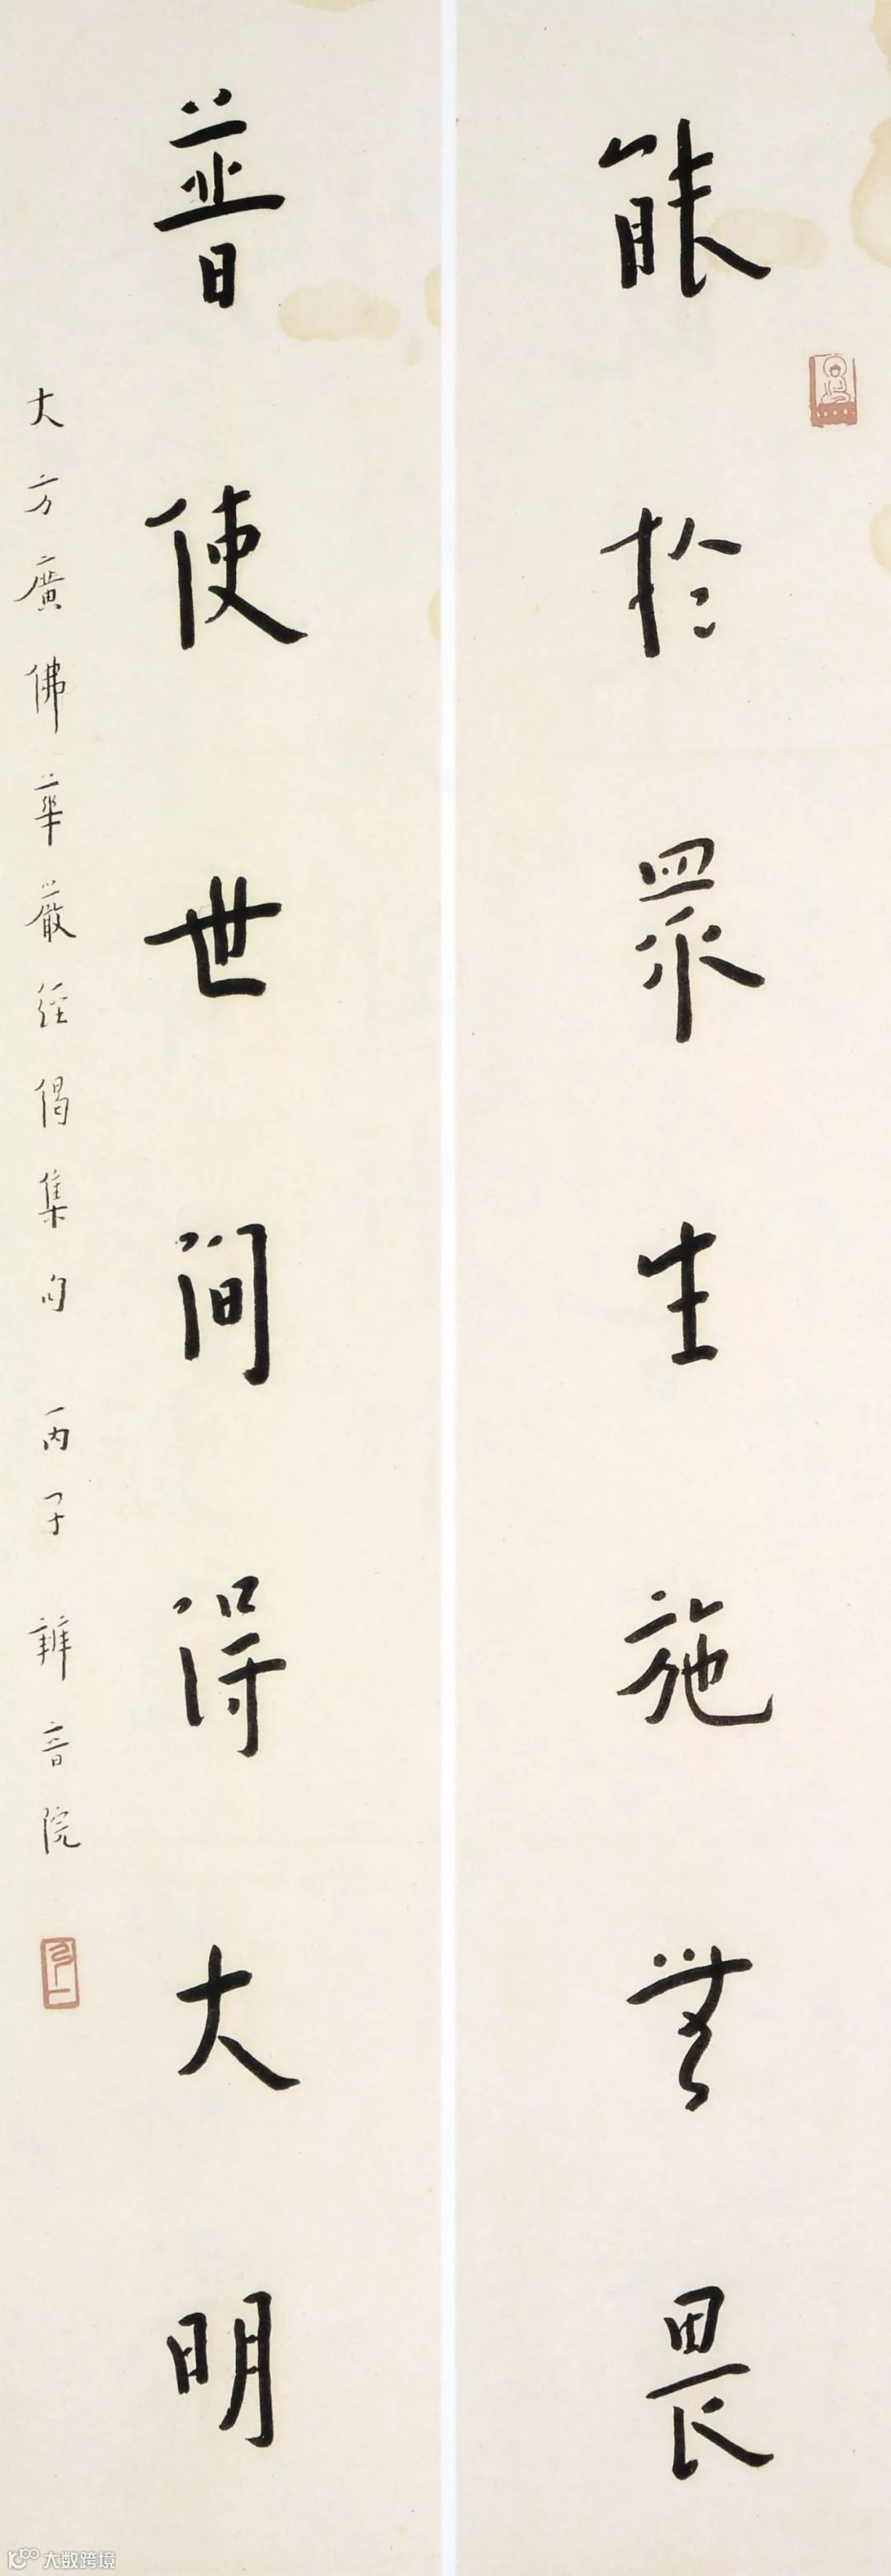 能於眾生施無畏
普使世間得大明
大方廣佛華嚴經偈集句 丙子 辨音院
大数跨境